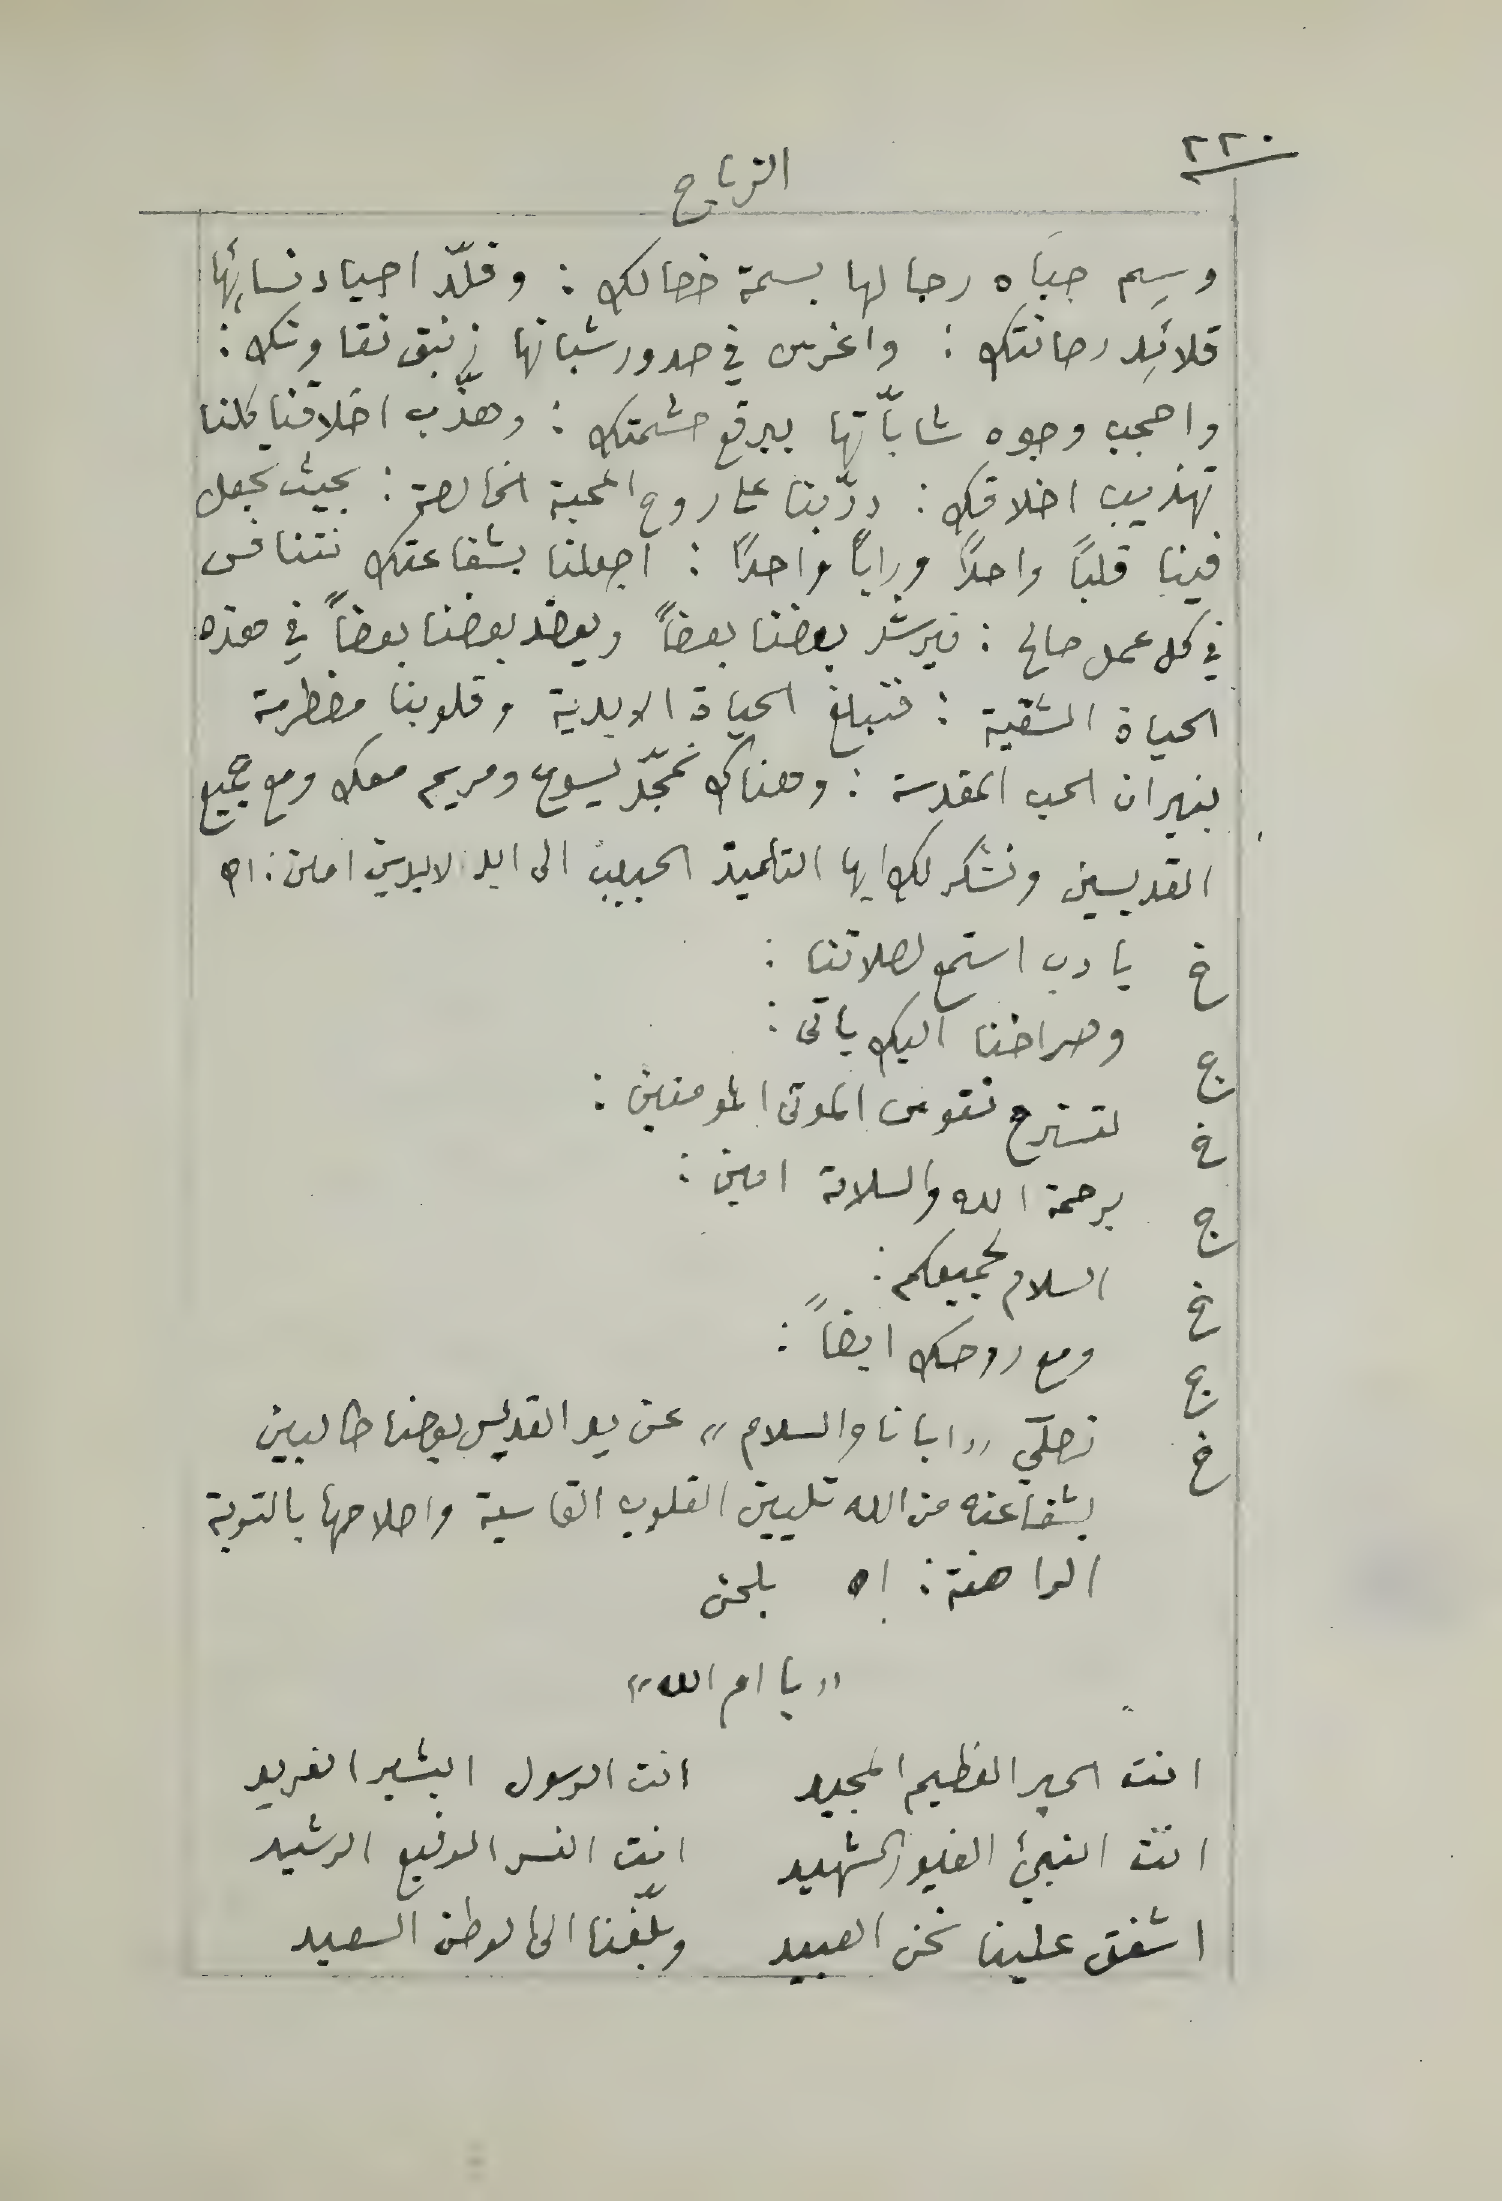 ٢٢٠
الزياح
وسِم جبَاه رجالها بسمة خصالك : وقلّد اجياد نسائِها
قلائِد رصانتك : واغرس في صدور شبانها زنبق نقاوتك :
واحجب وجوه شابّاتها ببرقع حشمتك : وهذّب اخلاقنا كلنا
تهذيب اخلاقك : دربّنا على روح المحبة الخالصة : بحيث تجعل
فينا قلباً واحداً وراياً واحداً : اجعلنا بشفاعتك نتنافس
في كل عمل صالح : فيرشد بعضنا بعضاً ويعضد بعضنا بعضاً في هذه
الحياة الشقية : فنبلغ الحياة الابدية وقلوبنا مضطرمة
بنيران الحب المقدسة : وهناك نمجّد يسوع ومريم معك ومع جميع
القديسين ونشكر لك ايها التلميذ الحبيب الى ابد الابدين امين : اه
خ يا رب استمع لصلاتنا :
ج وصراخنا اليك ياتى :
خ لتسترح نفوس الموتى المومنين :
ج برحمة الله والسلامة امين :
خ السلام لجميعكم :
ج ومع روحك ايضاً :
خ نصلّي "ابانا والسلام" عن يد القديس يوحنا طالبين
بشفاعته من الله تليين القلوب القاسية واصلاحها بالتوبة
الراهنة : اه بلحن
"يا ام الله"
انت الحبر العظيم المجيد انت الرسول البشير الفريد
انت النبيُ الغيور الشهيد انت النسر الرفيع الرشيد
اشفق علينا نحن العبيد وبلّغنا الى الوطن السعيد